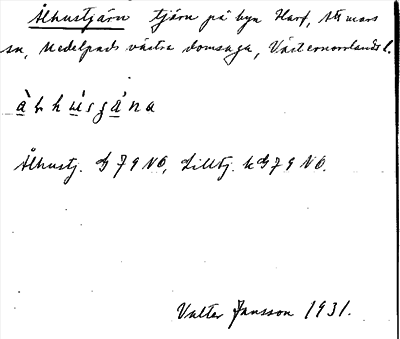 Ålhustjärn tjärn på byn Harf, Attmars
sn, Medelpads västra domsaga, Västernorrlands l.
Ålhustj. G 79 NO, Lilltj. k G 79 NO.
Valter Jansson 1931.